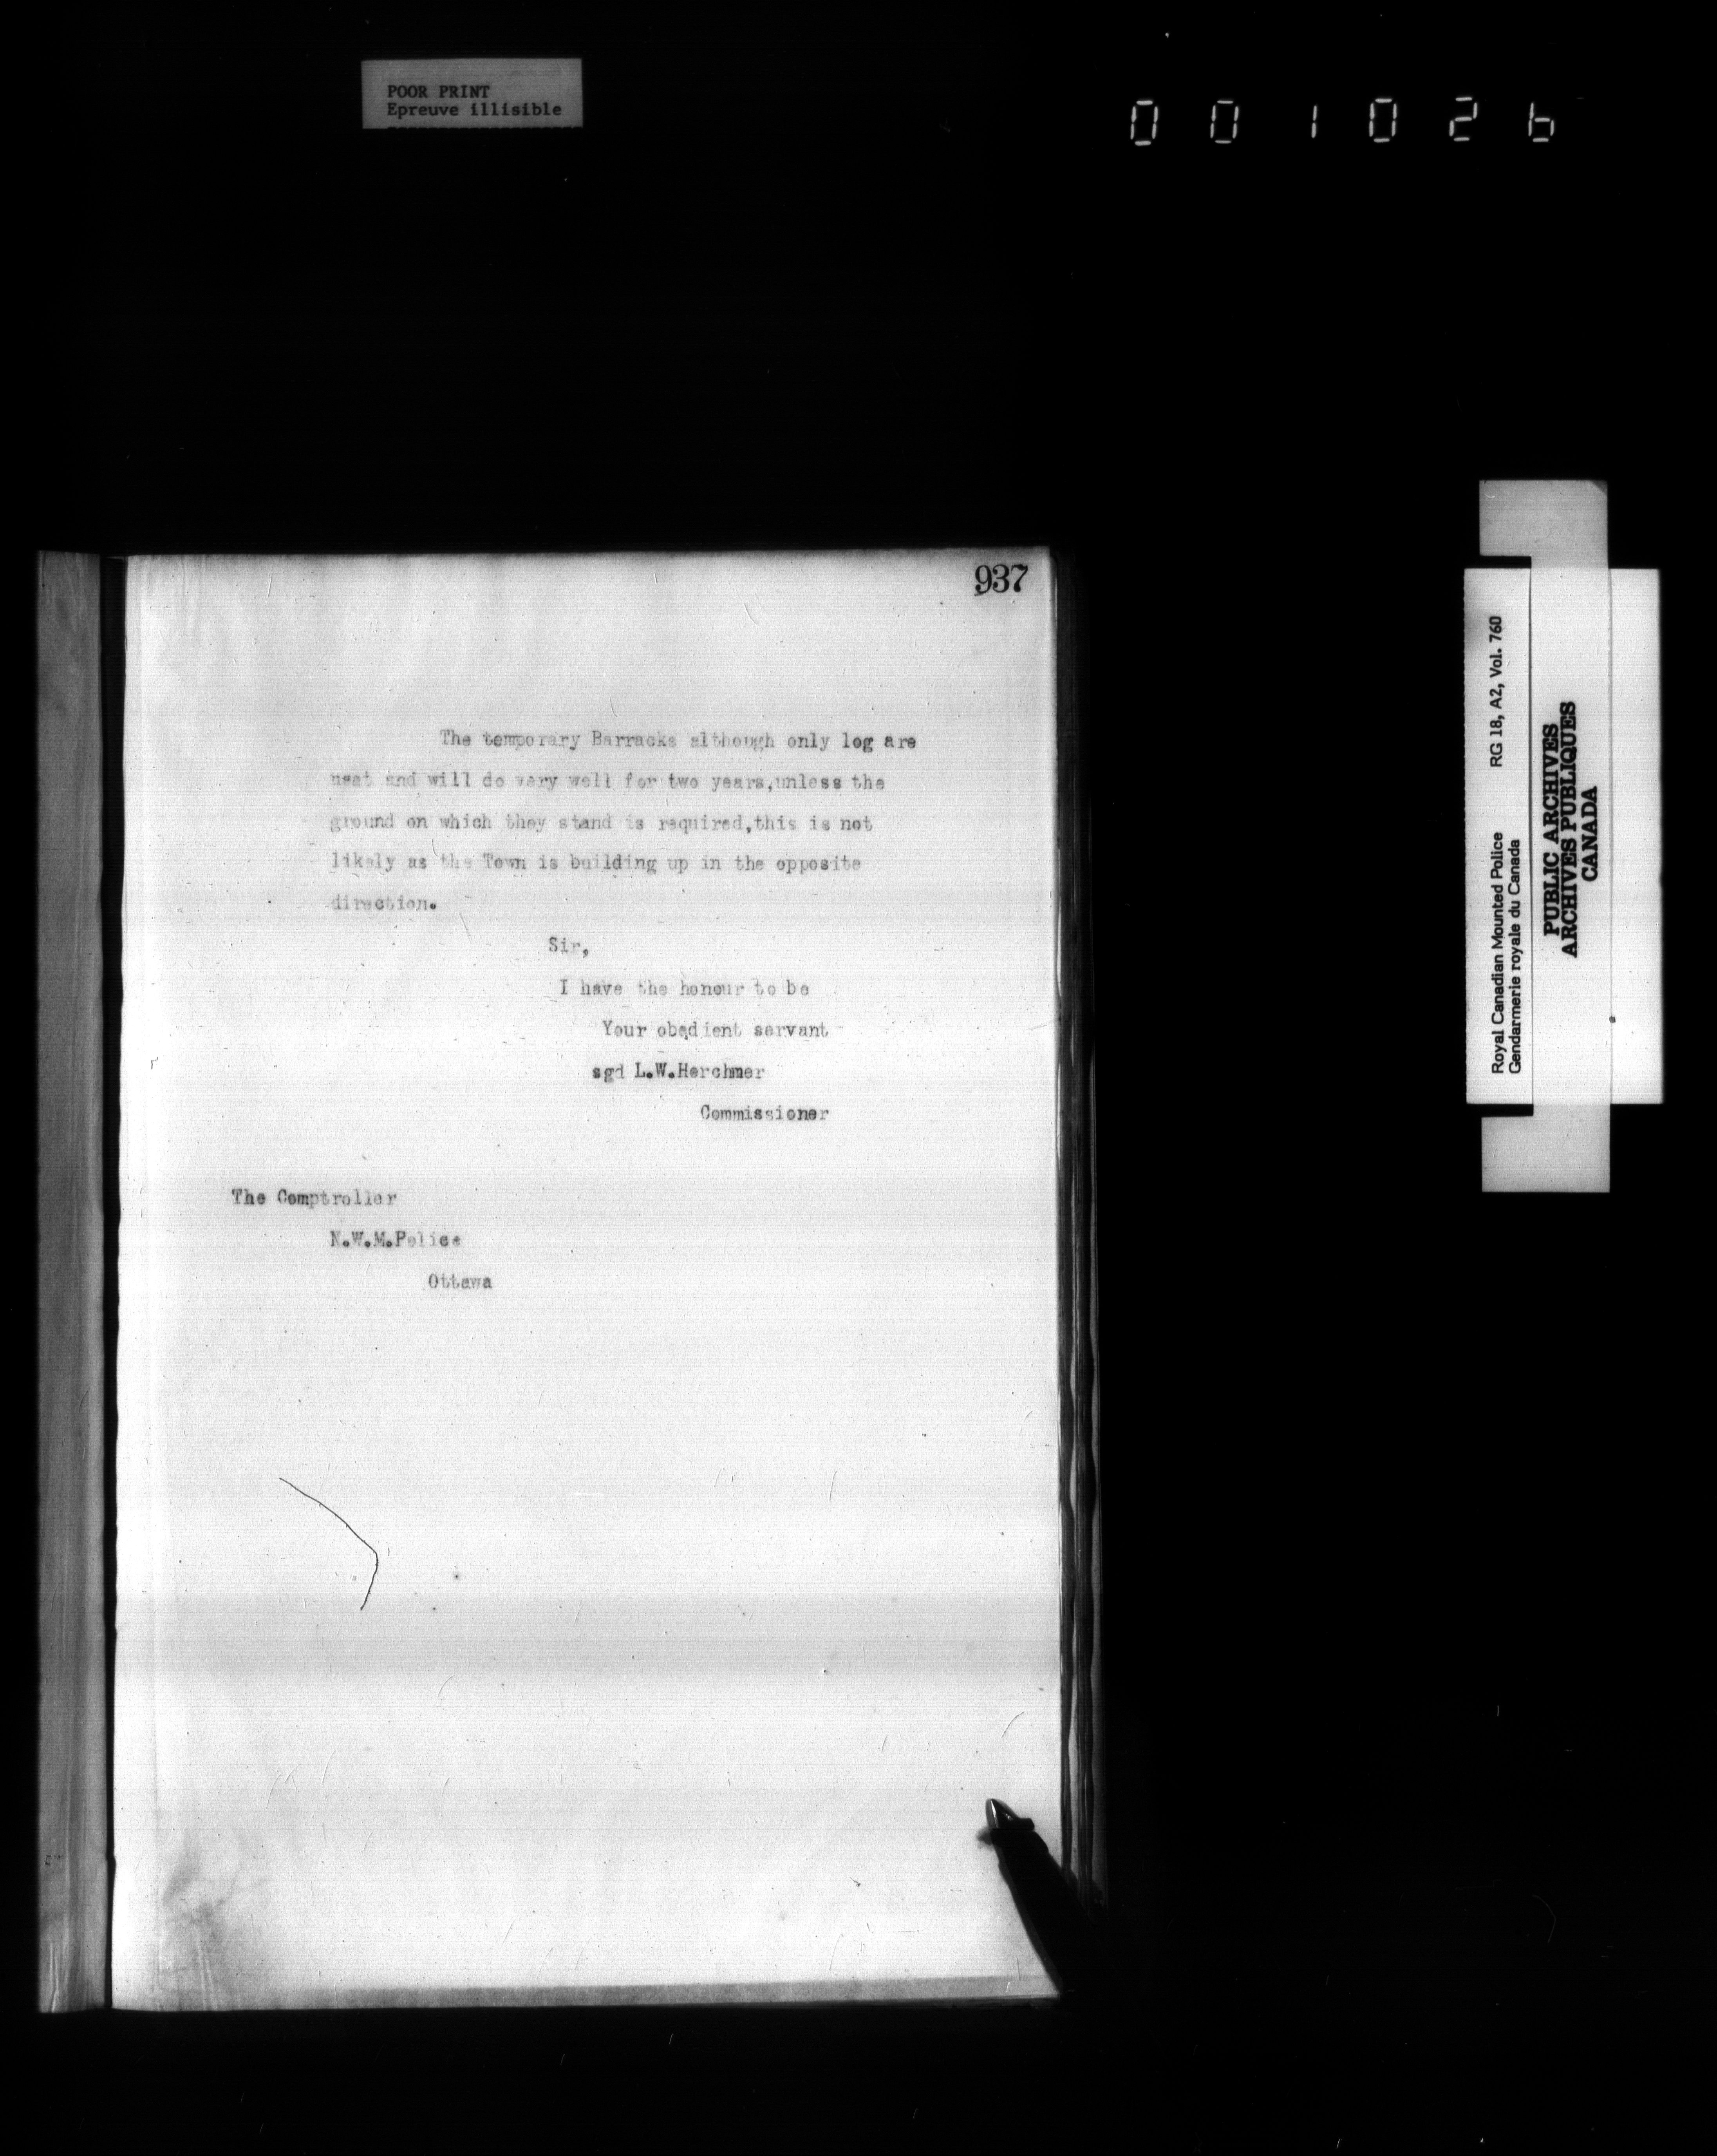 POOR PRINT
Epreuve illisible
001026
937
The temporary Barracks although only log are
neat and will do very well for two years,unless the
ground on which they stand is required,this is not
likely as the Town is building up in the opposite
direction.
Sir,
I have the honour to be
Your obedient servant
sgd L.W.Herchmer
Commissioner
The Comptroller
N.W.M.Police
Ottawa
Royal Canadian Mounted Police RG 18, A2, Vol. 760
Gendarmerie royale du Canada
PUBLIC ARCHIVES
ARCHIVES PUBLIQUES
CANADA